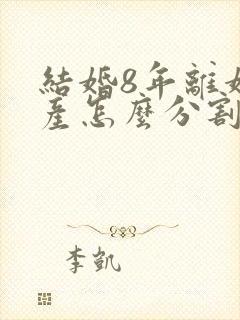 結婚8年離
產怎麼分割
李凱